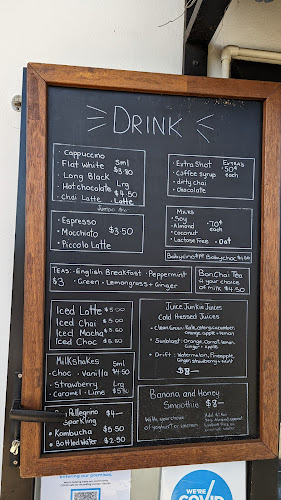 DRINK
• Cappuccino
• Flat White
• Long Black
• Hot chocolate
• Chai Latte
Sml
$3.80
Lrg
$4.50
• Latte
• Espresso
• Macchiato
• Piccolo Latte
$3.50
TEAS: • English Breakfast • Peppermint
$3 • Green • Lemongrass + Ginger
Iced Latte $5.00
Iced Chai $5.00
Iced Mocha
Iced Choc
MilkShakes Sml
• Choc • Vanilla $4.50
• Strawberry Lrg
• Caramel • Lime
Pellegrino $4—
Sparkling
• Kombucha $5.50
• Bottled Water $2.50
• Extra Shot
• Coffee syrup
• dirty chai
• Chocolate
EXTRAS
.50¢
each
MILKS
• Soy
• Almond
• Coconut
• Lactose Free • Oat
.70¢
each
Bon Chai Tea
& your choice
of milk $4.50
Juice Junkie Juices
Cold Pressed Juices
• Clean Green: Kale, celery, cucumber,
orange, apple + lemon
• Sunblast: Orange, Carrot, lemon,
Ginger + apple
• Drift: Watermelon, Pineapple,
Ginger, strawberry + mint
$8—
Banana and Honey
Smoothie $8—
With your choice
of yoghurt or icecream
WE'RE
COVID